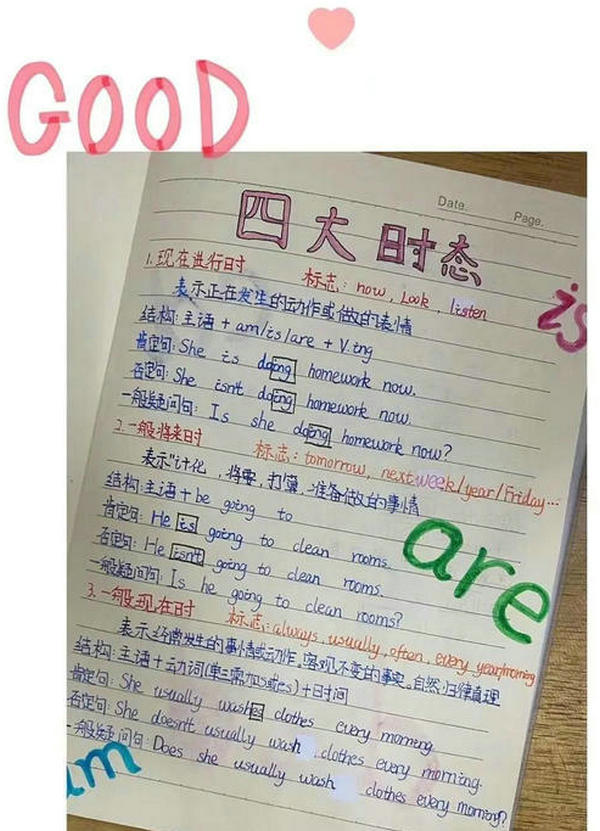 GOOD
Date.
Page.
四大时态
is
1.现在进行时 标志：now, Look, listen
表示正在发生的动作或做的事情
结构：主语 + am/is/are + V.ing
肯定句：She is doing homework now.
否定句：She isn't doing homework now.
一般疑问句：Is she doing homework now?
2.一般将来时 标志：tomorrow, next week/year/Friday...
表示"计化，将要，打算，准备做的事情
结构：主语 + be going to
肯定句：He is going to clean rooms.
否定句：He isn't going to clean rooms.
一般疑问句：Is he going to clean rooms?
are
3.一般现在时 标志：always, usually, often, every year/morning
表示经常发生的事情或动作，客观不变的事实，自然归律真理
结构：主语 + 动词(单三需加s或es) + 时间
肯定句：She usually washes clothes every morning
否定句：She doesn't usually wash clothes every morning.
一般疑问句：Does she usually wash clothes every morning?
am